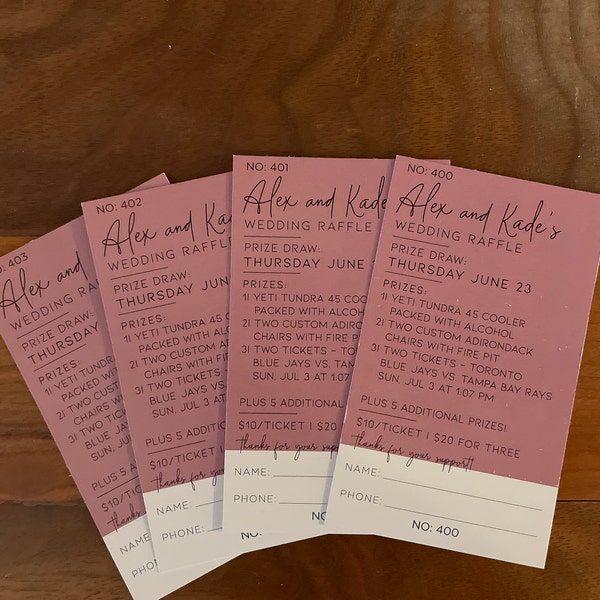 NO: 403
Alex and
WEDDING RAFFLE
PRIZE DRAW:
THURSDAY
PRIZES:
1) YETI TUNDRA
PACKED WITH
2) TWO CUSTOM
CHAIRS WITH
3) TWO TICKETS
BLUE JAYS
SUN. JUL
PLUS 5
$10/TICKET
thanks for
NAME:
PHONE:
NO: 402
Alex and Kade
WEDDING RAFFLE
PRIZE DRAW:
THURSDAY JUNE
PRIZES:
1) YETI TUNDRA 45
PACKED WITH
2) TWO CUSTOM
CHAIRS WITH
3) TWO TICKETS –
BLUE JAYS VS.
SUN. JUL 3 AT
PLUS 5 ADDITIONAL
$10/TICKET |
thanks for your
NAME:
PHONE:
NO: 401
Alex and Kade
WEDDING RAFFLE
PRIZE DRAW:
THURSDAY JUNE
PRIZES:
1) YETI TUNDRA 45 COOLER
PACKED WITH ALCOHOL
2) TWO CUSTOM ADIRONDACK
CHAIRS WITH FIRE PIT
3) TWO TICKETS – TORONTO
BLUE JAYS VS. TAMPA
SUN. JUL 3 AT 1:07 PM
PLUS 5 ADDITIONAL
$10/TICKET | $20
thanks for your support!
NAME:
PHONE:
NO:
NO: 400
Alex and Kade's
WEDDING RAFFLE
PRIZE DRAW:
THURSDAY JUNE 23
PRIZES:
1) YETI TUNDRA 45 COOLER
PACKED WITH ALCOHOL
2) TWO CUSTOM ADIRONDACK
CHAIRS WITH FIRE PIT
3) TWO TICKETS – TORONTO
BLUE JAYS VS. TAMPA BAY RAYS
SUN. JUL 3 AT 1:07 PM
PLUS 5 ADDITIONAL PRIZES!
$10/TICKET | $20 FOR THREE
thanks for your support!
NAME:
PHONE:
NO: 400